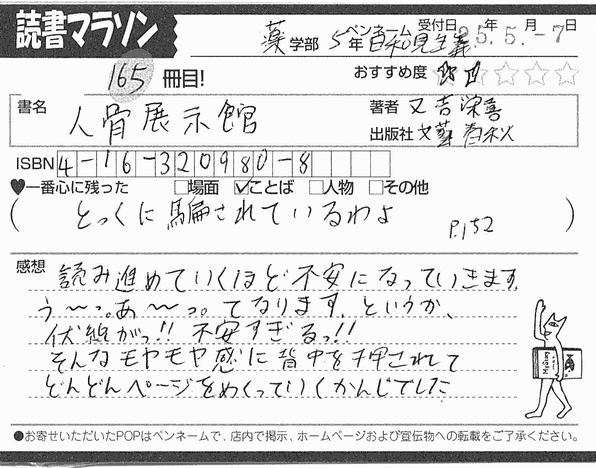 読書マラソン
薬学部 5年 ペンネーム 日和見主義 受付日 25年5月-7日
165冊目! おすすめ度 ☆☆☆☆☆
書名 人骨展示館 著者 又吉栄喜
出版社 文藝春秋
ISBN 4-16-320980-8
♥一番心に残った □場面 ☑ことば □人物 □その他
( とっくに騙されているわよ P.152 )
感想 読み進めていくほど不安になっていきます。
う〜っ。あ〜っ。てなります。というか、
伏線がっ!! 不安すぎるっ!!
そんなモヤモヤ感に背中を押されて
どんどんページをめくっていくかんじでした
●お寄せいただいたPOPはペンネームで、店内で掲示、ホームページおよび宣伝物への転載をご了承ください。